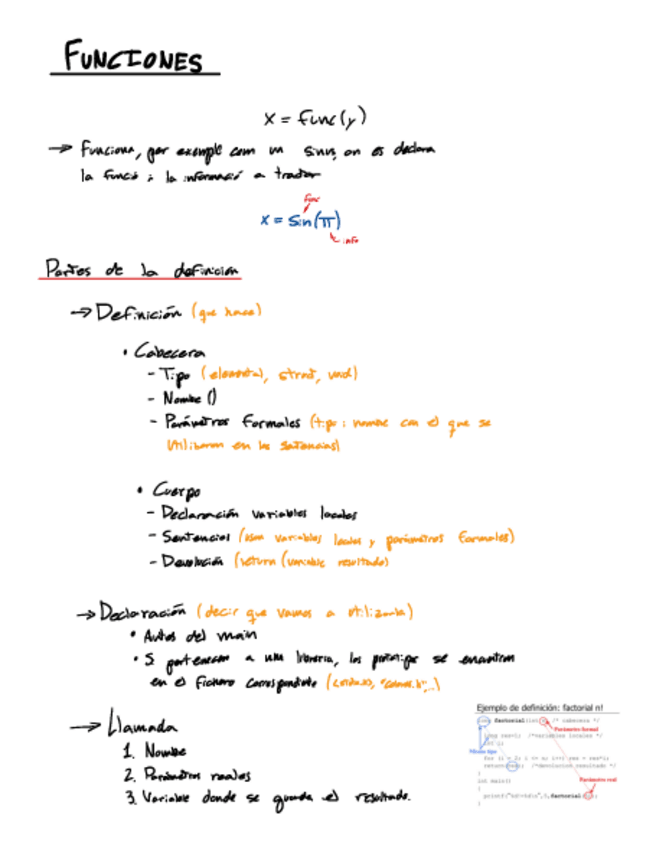 FUNCIONES
x = func(y)
→ Funcions, per exemple com un sinus, on es declara
la funció i la informació a tractar
func
x = sin(π)
info
Partes de la definición
→ Definición (que hace)
• Cabecera
- Tipo (elemental, struct, void)
- Nombre ()
- Parámetros formales (tipo i nombre con el que se
utilizaran en las sentencias)
• Cuerpo
- Declaración variables locales
- Sentencias (usan variables locales y parámetros formales)
- Devolución (return (variable resultado)
→ Declaración (decir que vamos a utilizarla)
• Antes del main
• Si pertenecen a una libreria, los prototipos se encuentran
en el fichero correspondiente
→ Llamada
1. Nombre
2. Parámetros reales
3. Variable donde se guarda el resultado.
Ejemplo de definición: factorial n!
factorial(int /* cabecera */
Parámetro formal
res=1; /*variables locales */
Mismo tipo
int i;
for (i = 2; i <= n; i++) res = res*i;
return /*devolucion resultado */
}
int main()
{
Parámetro real
factorial
}